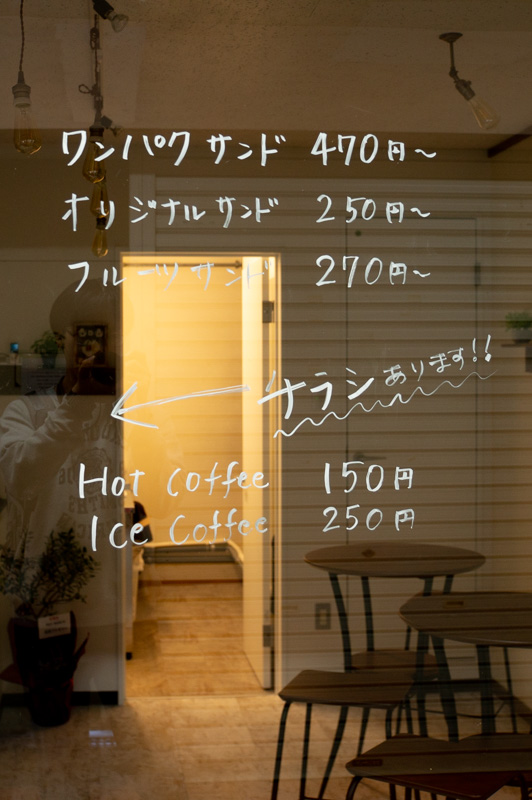 ワンパクサンド 470円~
オリジナルサンド 250円~
フルーツサンド 270円~
← チラシあります!!
Hot Coffee 150円
Ice Coffee 250円